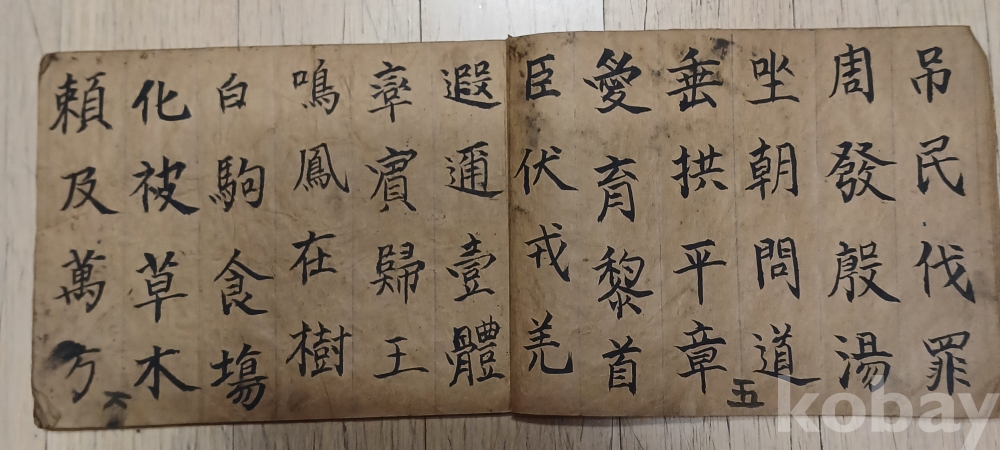 吊民伐罪
周發殷湯
坐朝問道
垂拱平章
愛育黎首
臣伏戎羌
遐邇壹體
率賓歸王
鳴鳳在樹
白駒食塲
化被草木
賴及萬方
五
kobay